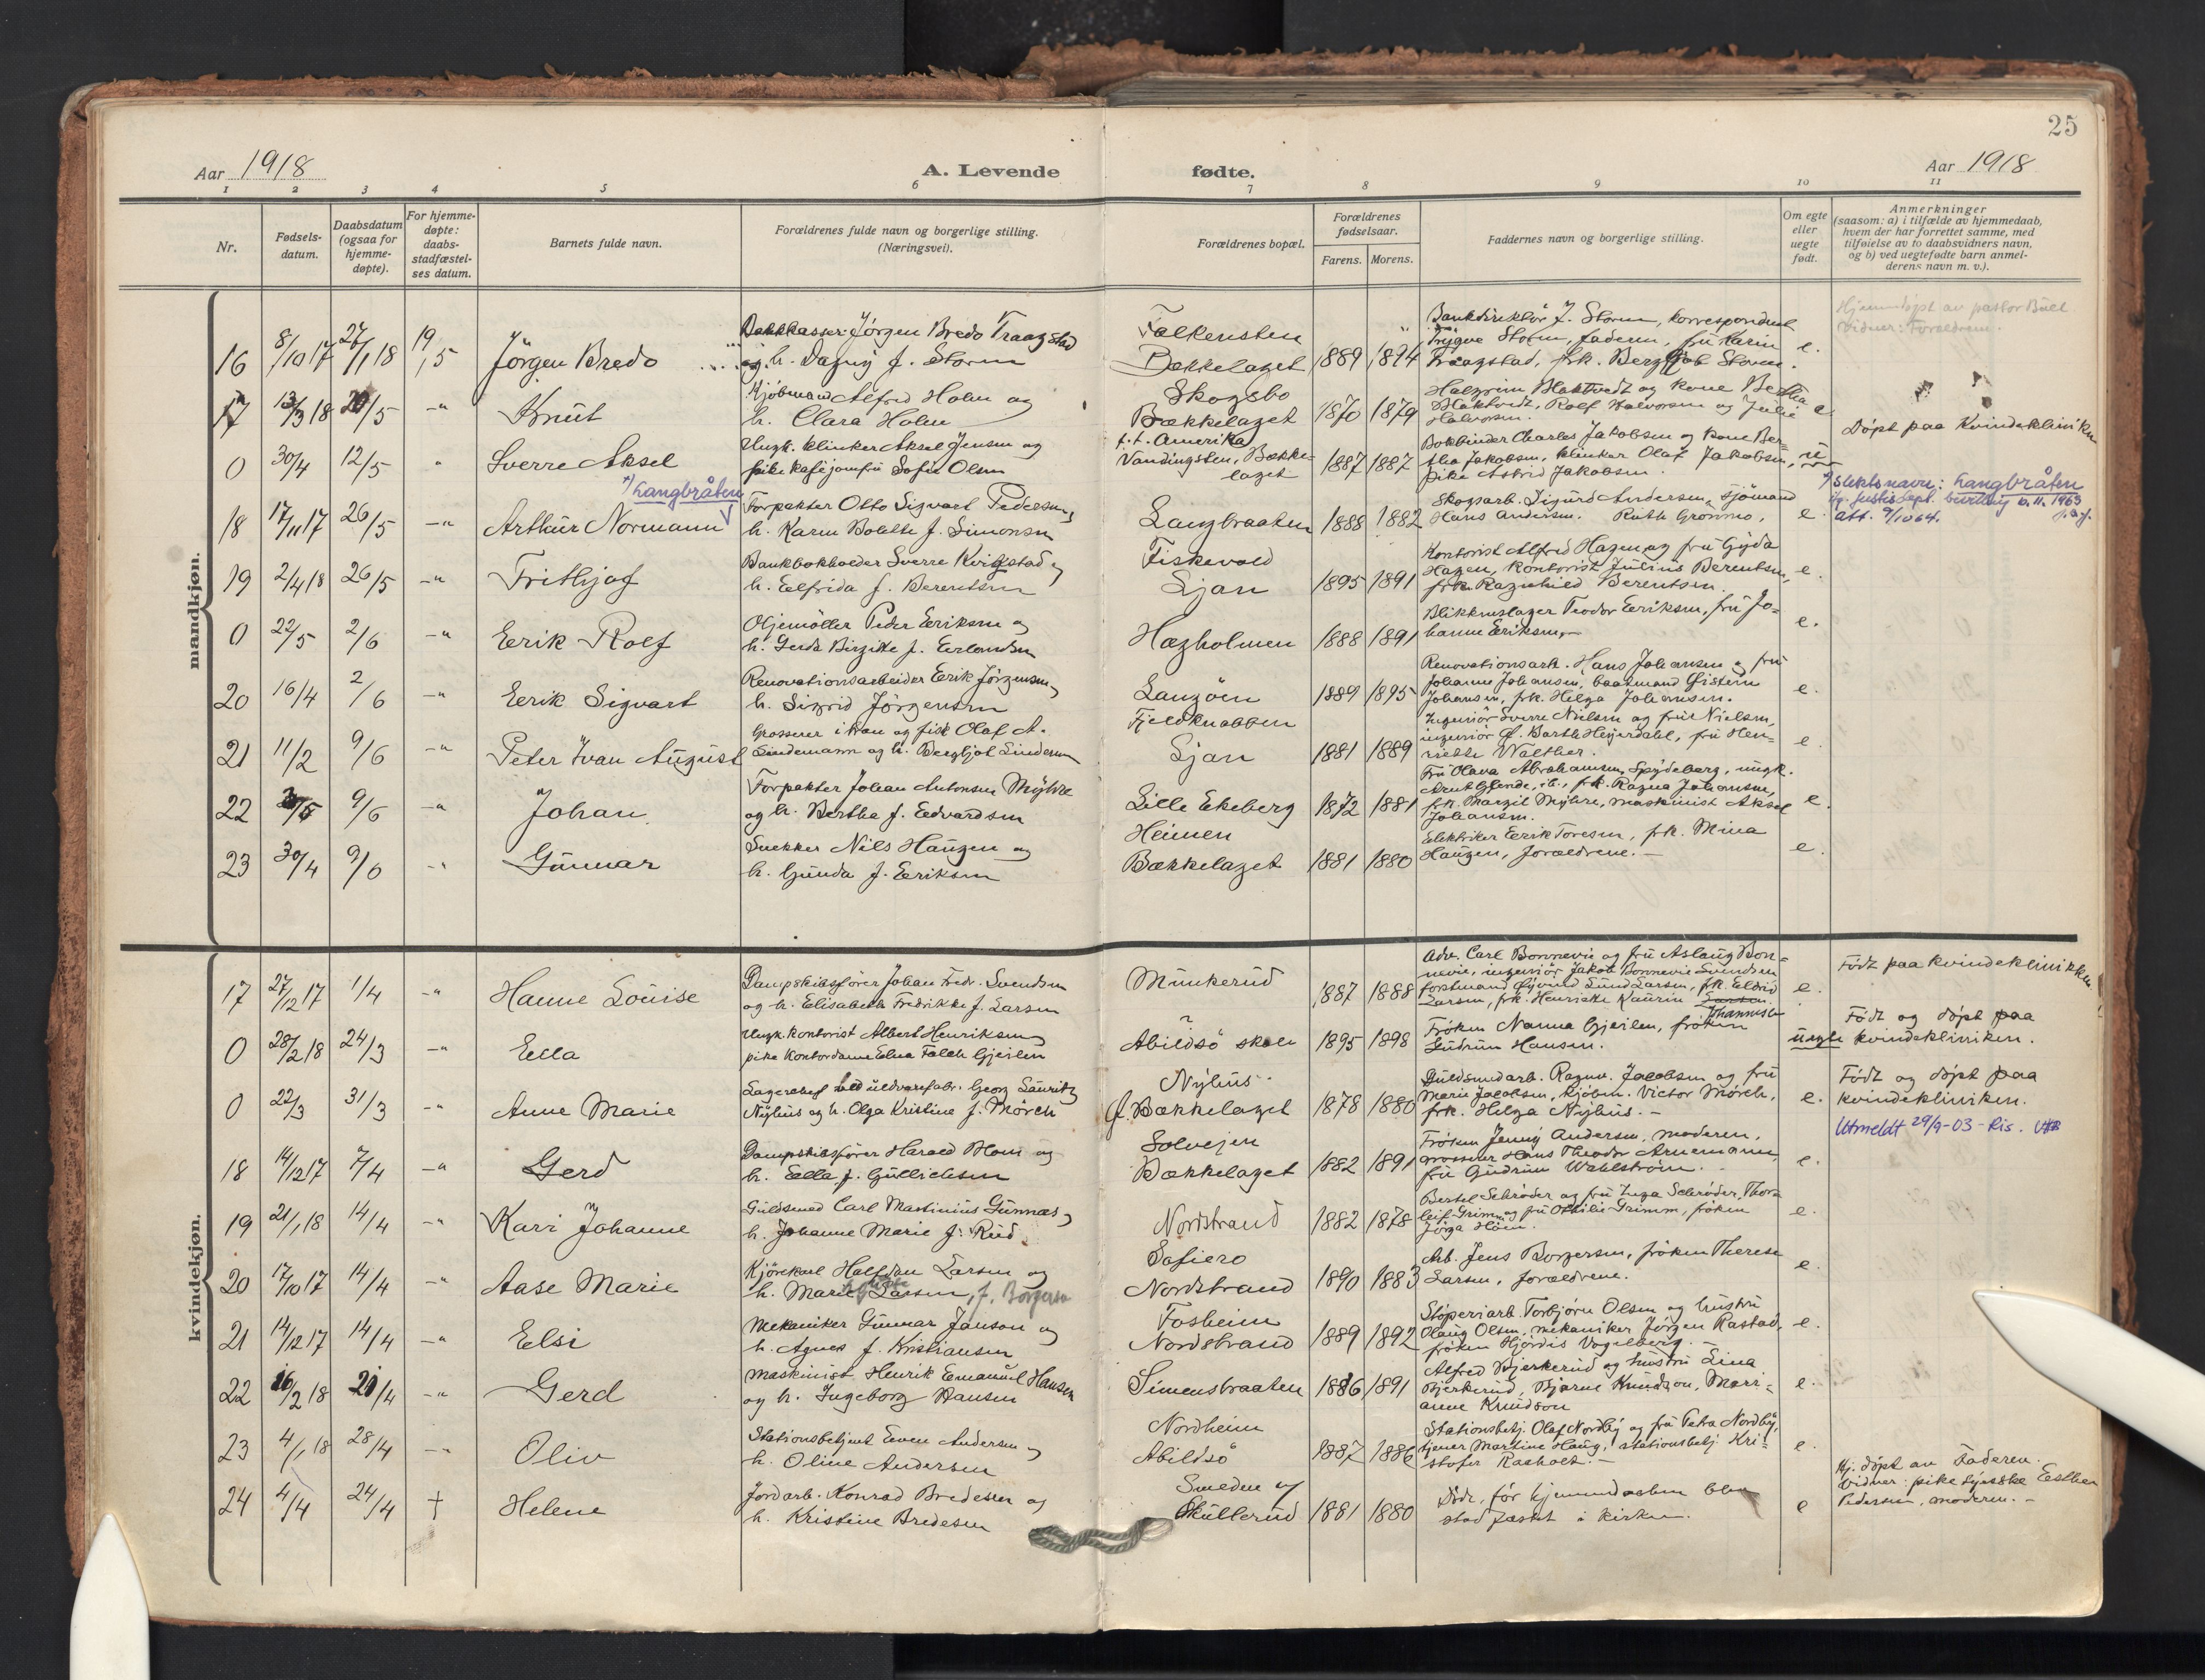 25
Aar 1918
A. Levende
fødte.
Aar 1918
1 2 3 4 5 6 7 8 9 10 11
Nr.
Fødsels-
datum.
Daabsdatum
(ogsaa for
hjemme-
døpte).
For hjemme-
døpte:
daabs-
stadfæstel-
ses datum.
Barnets fulde navn.
Forældrenes fulde navn og borgerlige stilling.
(Næringsvei).
Forældrenes bopæl.
Forældrenes
fødselsaar.
Farens. Morens.
Faddernes navn og borgerlige stilling.
Om egte
eller
uegte
født.
Anmerkninger
(saasom: a) i tilfælde av hjemmedaab,
hvem der har forrettet samme, med
tilføielse av to daabsvidner navn,
og b) ved uegtefødte barn anmel-
derens navn m. v.).
mandkjøn.
16 8/10 17 27/1 18 19/5 Jörgen Bredo
Jörgen Bredo Fraagstad
og h. Dagny f. Storm
Falkensten
Bækkelaget 1889 1894
Bankdirektör J. Storm, korrespondent
Trygve Storm, faderen, frü Karin
Fraagstad, frk. Bergljot Storm. e.
Hjemmedöpt av pastor Büll
Vidner: Forældrene.
17 13/3 18 20/5 -"- Knüt
Kjöbmand Alfred Holm og
h. Clara Holm
Skogsbo
Bækkelaget 1870 1879
Halgrim Blaktvedt og kone Bertha
Blaktvedt, Rolf Halvorsen og Julie
Halvorsen. e
Döpt paa Kvindekliniken
0 30/4 12/5 " Sverre Aksel
Ungk. klinker Aksel Jensen og
pike kafejomfrü Sofie Olsen
f.t. Amerika
Vandingsten, Bække-
laget 1887 1887
Bokbinder Charles Jakobsen og kone Ber-
tha Jakobsen, klinker Olaf Jakobsen,
pike Astrid Jakobsen. ü
18 17/11 17 26/5 -"- Arthür Normann x) Langbråten
Forpakter Otto Sigvart Pedersen og
h. Karen Bolette f. Simonsen
Langbraaten 1888 1882
Skogsarb. Sigurd Andersen, sjömand
Hans Andersen. Rüth Grönmo. e.
x) Slektsnavn: Langbråten
att. 9/10 64.
19 2/4 18 26/5 -"- Frithjof
Bankbokholder Sverre Kvigstad og
h. Elfrida f. Berentsen
Fiskevold
Ljan 1895 1891
Kontorist Alfred Hagen og frü Gyda
Hagen, kontorist Jülius Berentsen,
frk. Ragnhild Berentsen. e.
0 22/5 2/6 -"- Erik Rolf
Oljemöller Peder Eriksen og
h. Gerda Birgitte f. Erlandsen
Hægholmen 1888 1891
Blikkenslager Teodor Eriksen, frü Jo-
hanne Eriksen. e.
20 16/4 2/6 -"- Erik Sigvart
Renovationsarbeider Erik Jörgensen og
h. Sigrid Jörgensen
Langöen 1889 1895
Renovationsarb. Hans Johansen og frü
Johanne Johansen, baatsmand Öistein
Johansen, frk. Helga Johansen. e.
21 11/2 9/6 -"- Peter Ivan Aügüst
Grosserer i tran og fisk Olaf A.
Lindemann og h. Bergljot Lindemann
Fjeldknabben
Ljan 1881 1889
Ingeniör Sverre Nielsen og früe Nielsen,
ingeniör F. Barth Heyerdahl, frü Hen-
riette Walther. e.
22 9/6 -"- Johan
Forpakter Johan Antonsen Myhre
og h. Berthe f. Edvardsen
Lille Ekeberg 1872 1881
Frü Olava Abrahamsen, Spydeberg, üngk.
frk. Ragna Johansen,
frk. Margit Myhre, maskinist Aksel
Johansen. e.
23 30/4 9/6 -"- Günnar
Snekker Nils Haügen og
h. Günda f. Eriksen
Heimen
Bækkelaget 1881 1880
Elektriker Erik Toresen, frk. Mina
Haügen, forældrene. e.
kvindekjøn.
17 27/12 17 1/4 -"- Hanne Louise
Dampskibsförer Johan Fredr. Svendsen
og h. Elisabeth Fredrikke f. Larsen
Münkerüd 1887 1888
Adv. Carl Bonnevie og frü Aslaüg Bon-
nevie, ingeniör Jakob Bonnevie Svendsen
forstmand Öjvind Lünd Larsen, frk. Eldrid
Larsen, frk. Henriette Kaurin Johannesen e.
Födt paa kvindeklinikken
0 28/2 18 24/3 -"- Ella
Ungk. kontorist Albert Henriksen og
pike kontordame Elna Falch Gjeilen
Abildsö skole 1895 1898
Fröken Nanna Gjeilen, fröken
Güdrün Hansen. üegte
Födt og döpt paa
kvindekliniken.
0 22/3 31/3 -"- Anne Marie
Lagerchef ved üldvarefabr. Georg Laüritz
Nyhüs og h. Olga Kristine f. Mörch
Nyhüs.
Bækkelaget 1878 1880
Güldsmedarb. Ragnv. Jacobsen og frü
Marie Jacobsen, kjöbm. Victor Mörch,
frk. Helga Nyhüs. e.
Födt og döpt paa
kvindekliniken.
Utmeldt 29/9-03 - Ris.
18 14/12 17 7/4 -"- Gerd
Dampskibsförer Harald Moni og
h. Ella f. Güllichsen
Solvejen
Bækkelaget 1882 1891
Fröken Jenny Andersen, moderen,
grosserer Hans Theodor Arnemann,
frü Güdrün Wahlström. e.
19 21/1 18 14/4 -"- Kari Johanne
Güldsmed Carl Martinius Günnæs og
h. Johanne Marie f. Rüd
Nordstrand 1882 1878
Bertel Schröder og frü Inga Schröder, Thor-
leif Grimm og frü Ottilie Grimm, fröken
Jörga Höm. e.
20 17/10 17 14/4 -"- Aase Marie
Kjörekarl Halfdan Larsen og
h. Marie Larsen, f. Borgersen
Safiero
Nordstrand 1890 1883
Arb. Jens Borgersen, fröken Therese
Larsen, forældrene. e.
21 14/12 17 14/4 -"- Elsi
Mekaniker Günnar Janson og
h. Agnes f. Kristiansen
Fosheim
Nordstrand 1889 1892
Stöperiarb. Torbjörn Olsen og hüstrü
Olaüg Olsen, mekaniker Jörgen Rastad,
fröken Hjördis Vogelberg. e.
22 16/2 18 21/4 -"- Gerd
Maskinist Henrik Emanuel Hansen
og h. Ingeborg Hansen
Simensbraaten 1886 1891
Alfred Bjerkerüd og hüstrü Lina
Bjerkerüd, Bjarne Knüdson, Mari-
anne Knüdson e.
23 4/1 18 28/4 -"- Oliv
Stationsbetjent Even Andersen og
h. Oline Andersen
Nordheim
Abildsö 1887 1886
Stationsbetj. Olaf Nordby og frü Petra Nordby,
tjener Martine Haüg, stationsbetj. Kri-
stofer Raaholt. e.
24 4/4 24/4 † Helene
Jordarb. Konrad Bredesen og
h. Kristine Bredesen
Smeden
Skullerüd 1881 1880
Död, för hjemmedaaben blev
stadfæstet i kirken. e
Hj. döpt av Faderen.
Vidner: pike syerske Esther
Pedersen, moderen.